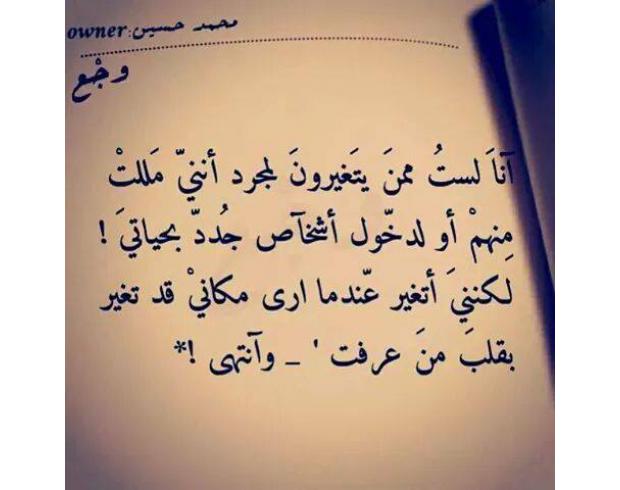 owner:محمد حسين
وجْع
آناَ لستُ ممنَ يتَغيرونَ لمجرد أننيّ مَللتْ
مِنهمْ أو لدخّول أشخآص جُددّ بحياتيَ !
لكننيَ أتغير عّندما ارى مكانيْ قد تغير
بقلبَ منَ عرفت ' ـ وآنتهى !*